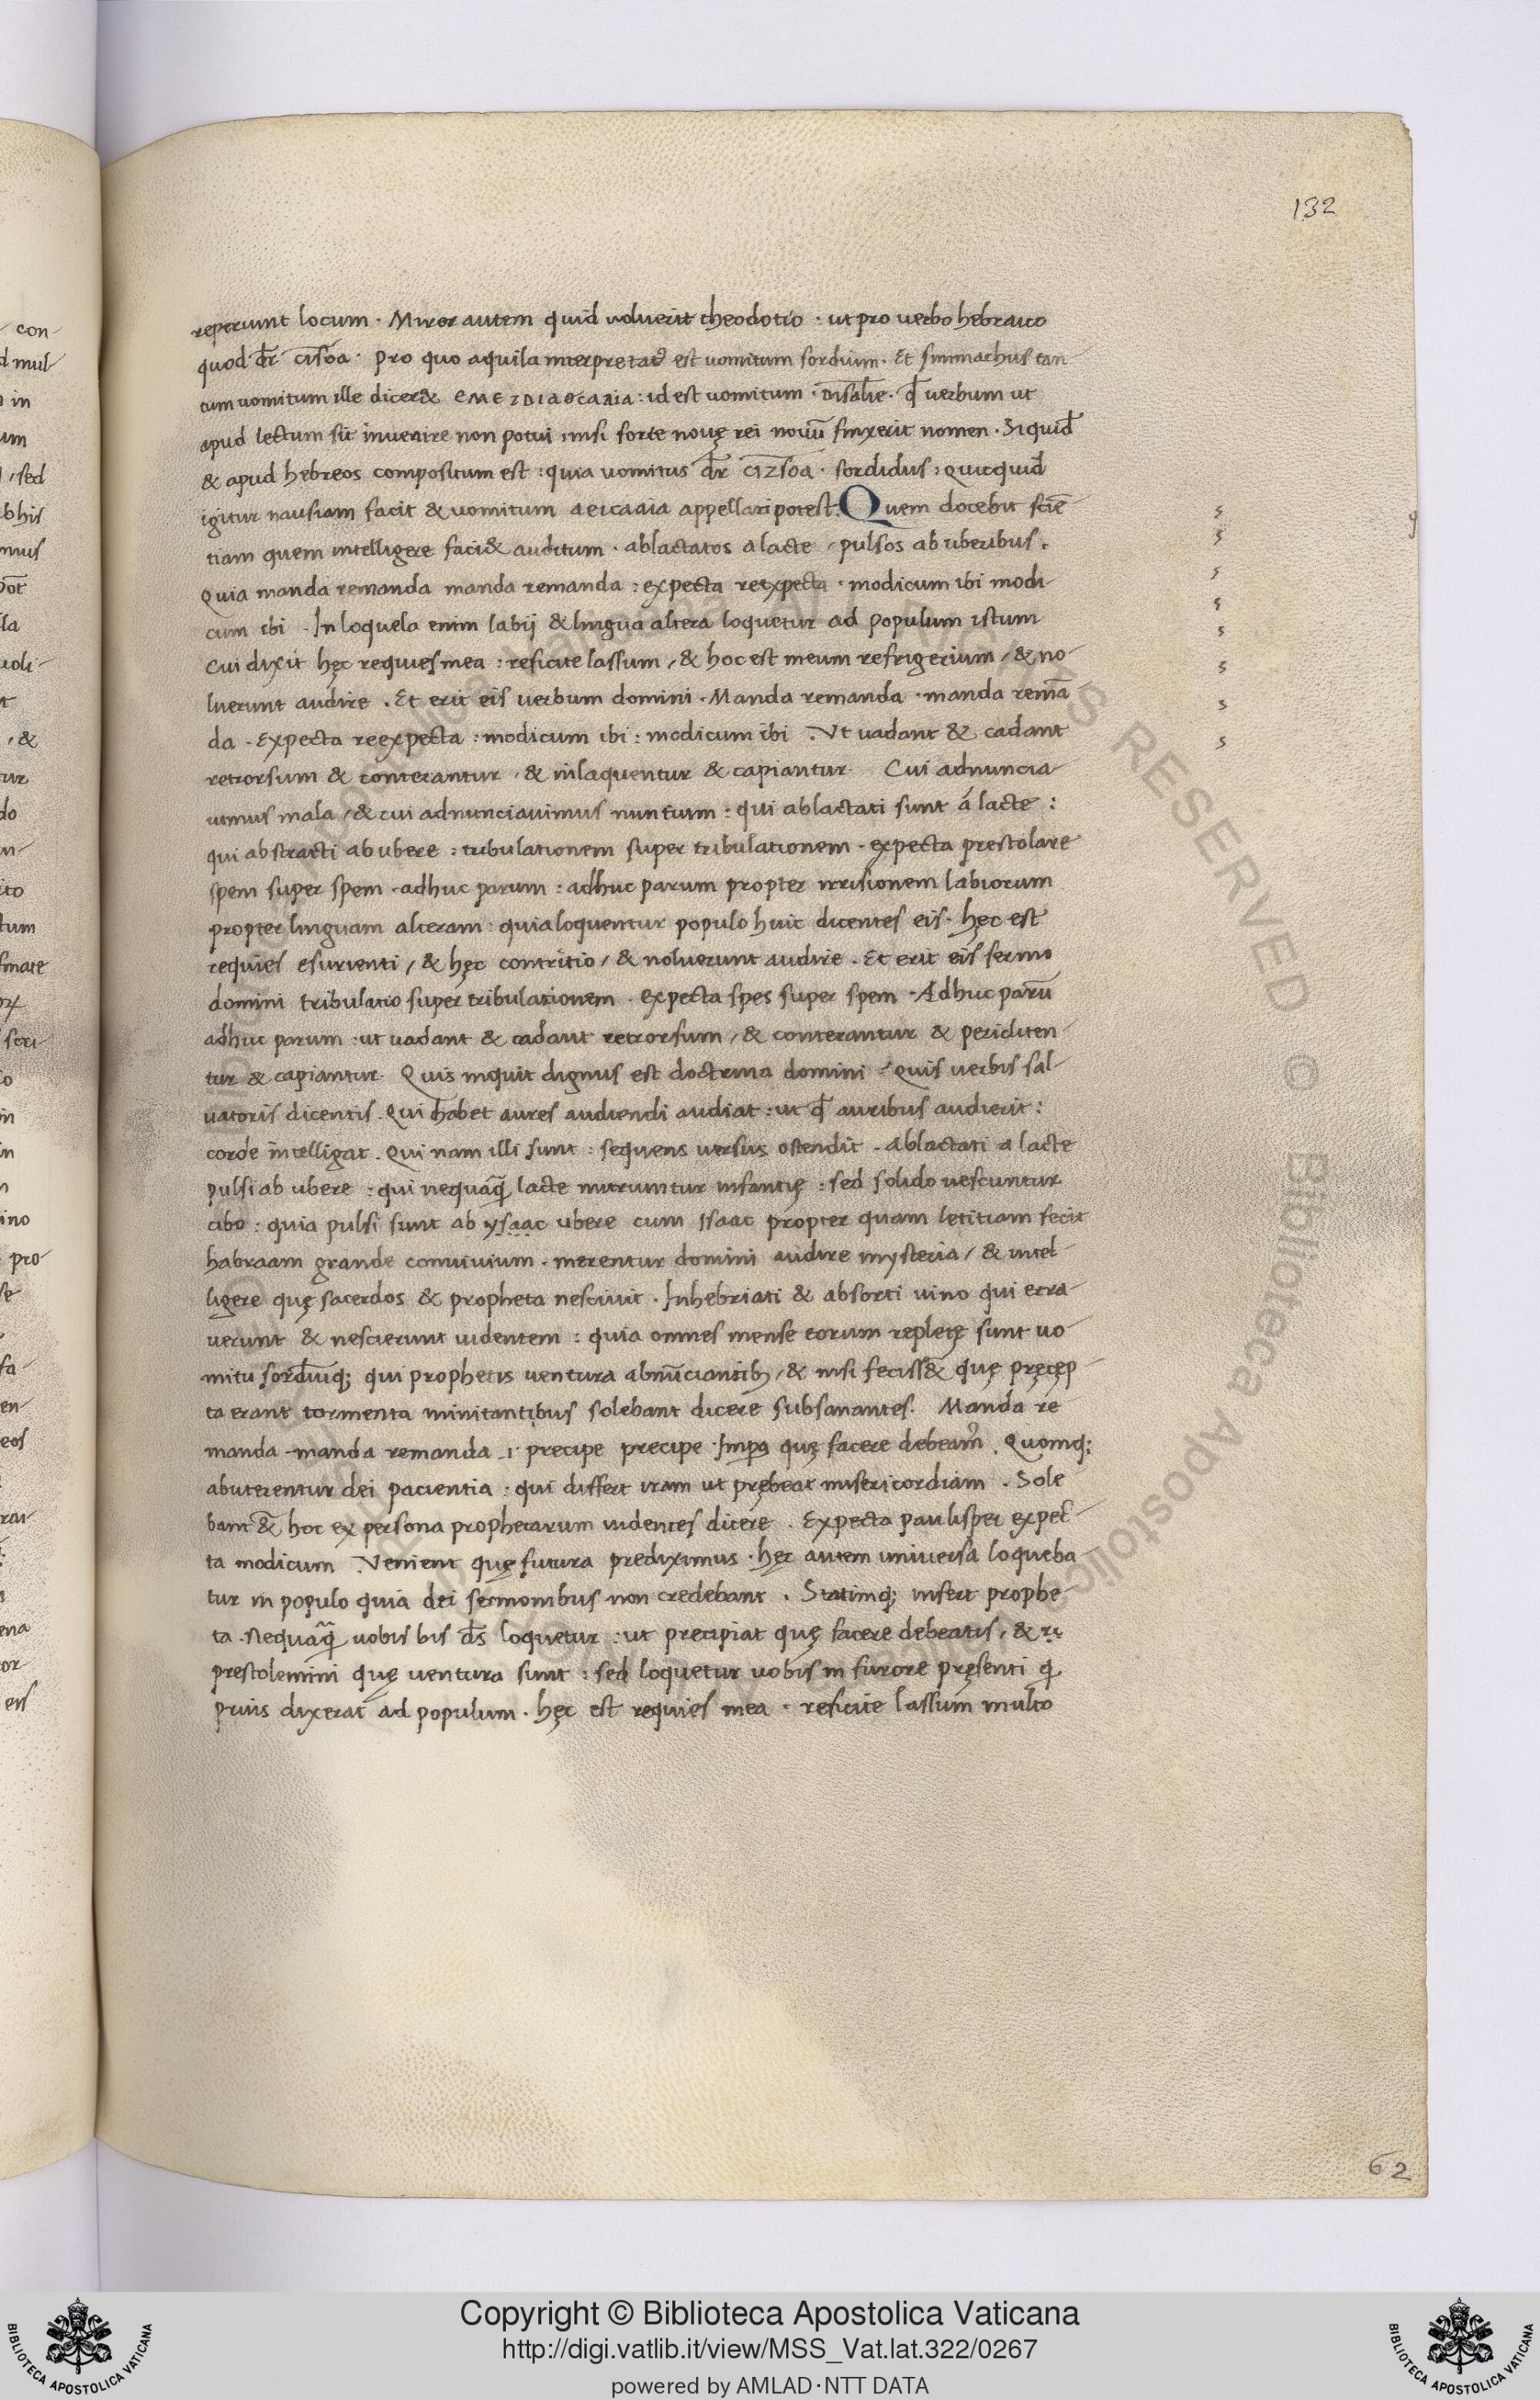 132
reperiunt locum · Miror autem quid uoluerit theodotio · ut pro uerbo hebraico
quod dr̄ cisoa · pro quo aquila interpretat᷒ est uomitum sordium · Et simmachus tan
tum uomitum ille dicer& : id est uomitum · qđ uerbum ut
apud lectum sit inuenire non potui : nisi forte nouę rei nouū finxerit nomen · Siquid
& apud hebreos compositum est : quia uomitus dr̄ cizsoa · sordidus : quicquid
igitur nausiam facit & uomitum aeicaaia appellari potest. Quem docebit sciē
tiam quem intelligere faci& auditum · ablactatos a lacte / pulsos ab uberibus .
quia manda remanda manda remanda : expecta reexpecta · modicum ibi modi
cum ibi . In loquela enim labij & lingua altera loquetur ad populum istum
cui dixit hęc requies mea : reficite lassum , & hoc est meum refrigerium , & no
luerunt audire . Et erit eis uerbum domini . Manda remanda · manda remā
da . Expecta reexpecta : modicum ibi : modicum ibi . Vt uadant & cadant
retrorsum & conterantur , & inlaquentur & capiantur Cui adnuncia
uimus mala , & cui adnunciauimus nuntium : qui ablactati sunt á lacte :
qui abstracti ab ubere : tribulationem super tribulationem . expecta prestolare
spem super spem . adhuc parum : adhuc parum propter irrisionem labiorum
propter linguam alteram : quia loquentur populo huic dicentes eis . hęc est
requies esurienti , & hęc contritio , & noluerunt audire . Et erit eis sermo
domini tribulatio super tribulationem . expecta spes super spem . Adhuc parū
adhuc parum : ut uadant & cadant retrorsum , & conterantur & periditen
tur & capiantur . Quis inquit dignus est doctrina domini quis uerbis sal
uatoris dicentis . Qui habet aures audiendi audiat : ut qđ auribus audierit :
corde intelligat . Qui nam illi sunt : sequens uersus ostendit . Ablactati a lacte
pulsi ab ubere : qui nequāq̄ lacte nutriuntur infantię : sed solido uescuntur
cibo : quia pulsi sunt ab ysaac ubere cum Isaac propter quam letitiam fecit
habraam grande conuiuium . merentur domini audire mysteria , & intel
ligere quę sacerdos & propheta nesciuit . Inhebriati & absorti uino qui erra
uerunt & nescierunt uidentem : quia omnes mense eorum repletę sunt uo
mitu sordiūq; qui prophetis uentura abnūciantib; , & nisi feciss& quę pręcep
ta erant tormenta minitantibus solebant dicere subsanantes . Manda re
manda manda remanda .i. precipe precipe quę facere debeam᷒ . Quomq;
abuterentur dei pacientia : qui differt iram ut prębeat misericordiam . Sole
bant & hoc ex persona prophetarum uidentes dicere . Expecta paulisper expec
ta modicum . Venient quę futura prediximus . hęc autem uniuersa loqueba
tur in populo quia dei sermonibus non credebant . Statimq; infert prophe
ta . Nequāq̄ uobis bis d̄s loquetur : ut precipiat quę facere debeatis , &
prestolemini quę uentura sunt : sed loquetur uobis in furore pręsenti q̄
prius dixerat ad populum . hęc est requies mea . reficite lassum multo
62
Copyright © Biblioteca Apostolica Vaticana
http://digi.vatlib.it/view/MSS_Vat.lat.322/0267
powered by AMLAD·NTT DATA